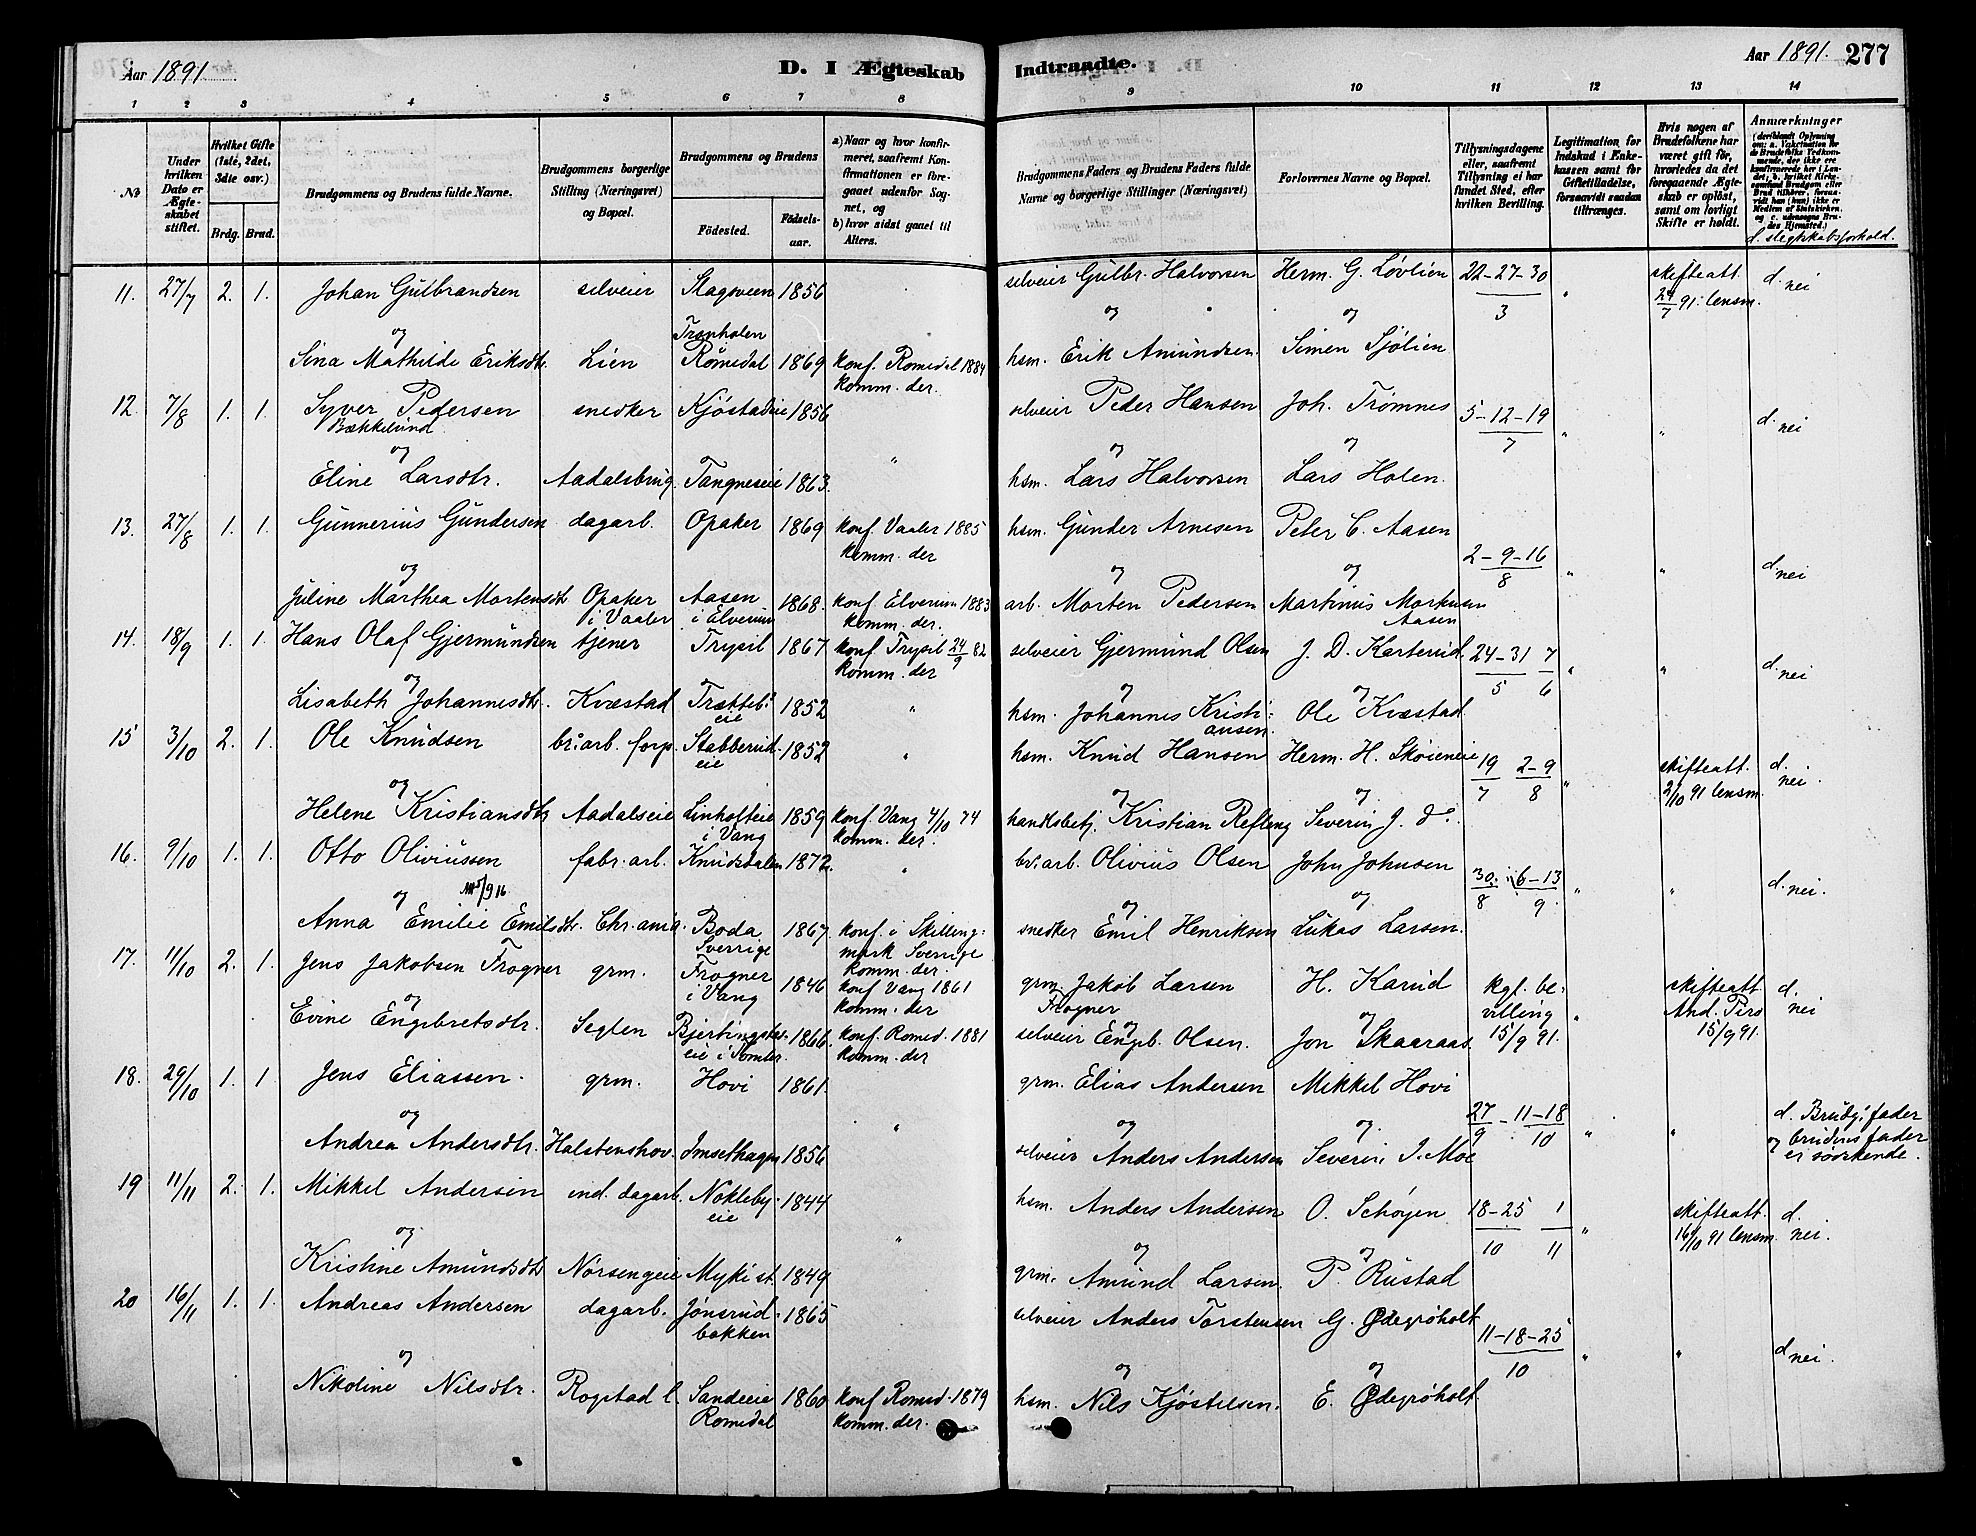 Aar 1891.
D. I Ægteskab
Indtraadte.
Aar 1891. 277
1 2 3 4 5 6 7 8 9 10 11 12 13 14
No
Under hvilken Dato er Ægteskabet stiftet.
Hvilket Gifte (1ste, 2det, 3die osv.)
Brdg. Brud.
Brudgommens og Brudens fulde Navne.
Brudgommens borgerlige Stilling (Næringsvei) og Bopæl.
Brudgommens og Brudens
Födested. Födsels-aar.
a) Naar og hvor konfirmeret, saafremt Konfirmationen er foregaaet udenfor Sognet, og
b) hvor sidst gaaet til Alters.
Brudgommens Faders og Brudens Faders fulde Navne og borgerlige Stillinger (Næringsvei)
Forlovernes Navne og Bopæl.
Tillysningsdagene eller, saafremt Tillysning ei har fundet Sted, efter hvilken Bevilling.
Legitimation for Indskud i Enkekassen samt for Giftetilladelse, forsaavidt saadan tiltrænges.
Hvis nogen af Brudefolkene har været gift för, hvorledes da det foregaaende Ægteskab er oplöst, samt om lovligt Skifte er holdt.
Anmærkninger
d. slegtskabsforhold.
11. 27/7 2. 1. Johan Gulbrandsen selveier Stagsveen 1856 selveier Gulbr. Halvorsen Herm. G. Løvlien 22-27-30/3 " skifteatt. 24/7 91. lensm. d. nei
og og og
Sina Mathilde Eriksdtr. Lien Tronholen Romedal 1869 konf. Romedal 1884 komm. der. hsm. Erik Amundsen Simen Sjølien
12. 7/8 1. 1. Syver Pedersen Bækkelund snedker Kjöstadeie 1856 selveier Peder Hansen Joh. Trømnes 5-12-19/7 " " d. nei
og " og og
Eline Larsdtr. Aadalsbrug Tangneseie 1863. hsm. Lars Halvorsen Lars Holen.
13. 27/8 1. 1. Gunnerius Gundersen dagarb. Opaker 1869 konf. Vaaler 1885 komm. der hsm. Gunder Arnesen Peter C. Aasen 2-9-16/8 " " d. nei
og og og
Juline Marthea Mortensdtr Opaker i Vaaler Aasen i Elverum 1868. konf. Elverum 1883 komm. der. arb. Morten Pedersen Martinus Aasen
14. 18/9 1. 1. Hans Olaf Gjermundsen tjener Trysil 1867 konf. Trysil 24/9 82 komm. der selveier Gjermund Olsen J. D. Karterud 24-31/5 7/6 " " d. nei
og og og
Lisabeth Johannesdtr. Kvæstad eie 1852 " hsm. Johannes Kristiansen. Ole Kvæstad
15 3/10 2. 1. Ole Knudsen br. arb. forp. Stabberud eie 1852 " hsm. Knud Hansen Herm. H. Skøieneie 19/7 2-9/8 " skifteatt. 2/10 91 lensm. d. nei.
og og og
Helene Kristiansdtr Aadalseie Linhofteie i Vang 1859 konf. Vang 4/10 74 komm. der. handlsbetj. Kristian Refling Severin J. do.
16. 9/10 1. 1. Otto Oliviussen fabr. arb. Knudsdalen 1872. " br. arb. Olivius Olsen John Johnsen 30/8 6-13/9 " " d. nei.
og og og
Anna Emilie Emilsdtr. Chr.ania. Boda Sverrige 1867. konf. i Skillingmark Sverige komm. der. snedker Emil Henriksen Lukas Larsen.
17. 11/10 2. 1. Jens Jakobsen Frogner grm. Frogner i Vang 1846 konf Vang 1861 komm. der grm. Jakob Larsen Frogner H. Karud kgl. bevilling 15/9 91. " skifteatt And. Piro 15/9 91. d. nei
og og og
Evine Engebretsdtr. Seglen 1866. konf. Romed. 1881 komm. der selveier Engb. Olsen. Jon Skaaraas
18. 29/10 1. 1 Jens Eliassen. grm. Hovi 1861. grm. Elias Andersen Mikkel Hovi 27/9 - 11-18/10 " " d. Brudg. fader og brudens fader er sødskende.
og " og og
Andrea Andersdtr. Halstenshov. Imsethagen 1856 selveier Anders Andersen Severin J. Moe
19 11/11 2. 1. Mikkel Andersen ind. dagarb. Nokleby eie 1844 hsm. Anders Andersen O. Schøyen 18-25/10 1/11 " skifteatt. 16/10 91 lensm. d. nei.
og " og og
Kristine Amundsdtr Norsengeie Mykist. 1849 grm. Amund Larsen. P. Rustad
20 16/11 1. 1. Andreas Andersen dagarb. Jönsrudbakken 1865 selveier Anders Torstensen G. Ødegrøholt 11-18-25/10 " " d. nei.
og og og
Nikoline Nilsdtr. Rogstad l. Sandeeie Romedal 1860 konf Romed. 1879 komm. der. hsm. Nils Kjöstelsen. E. Ødegrøholt